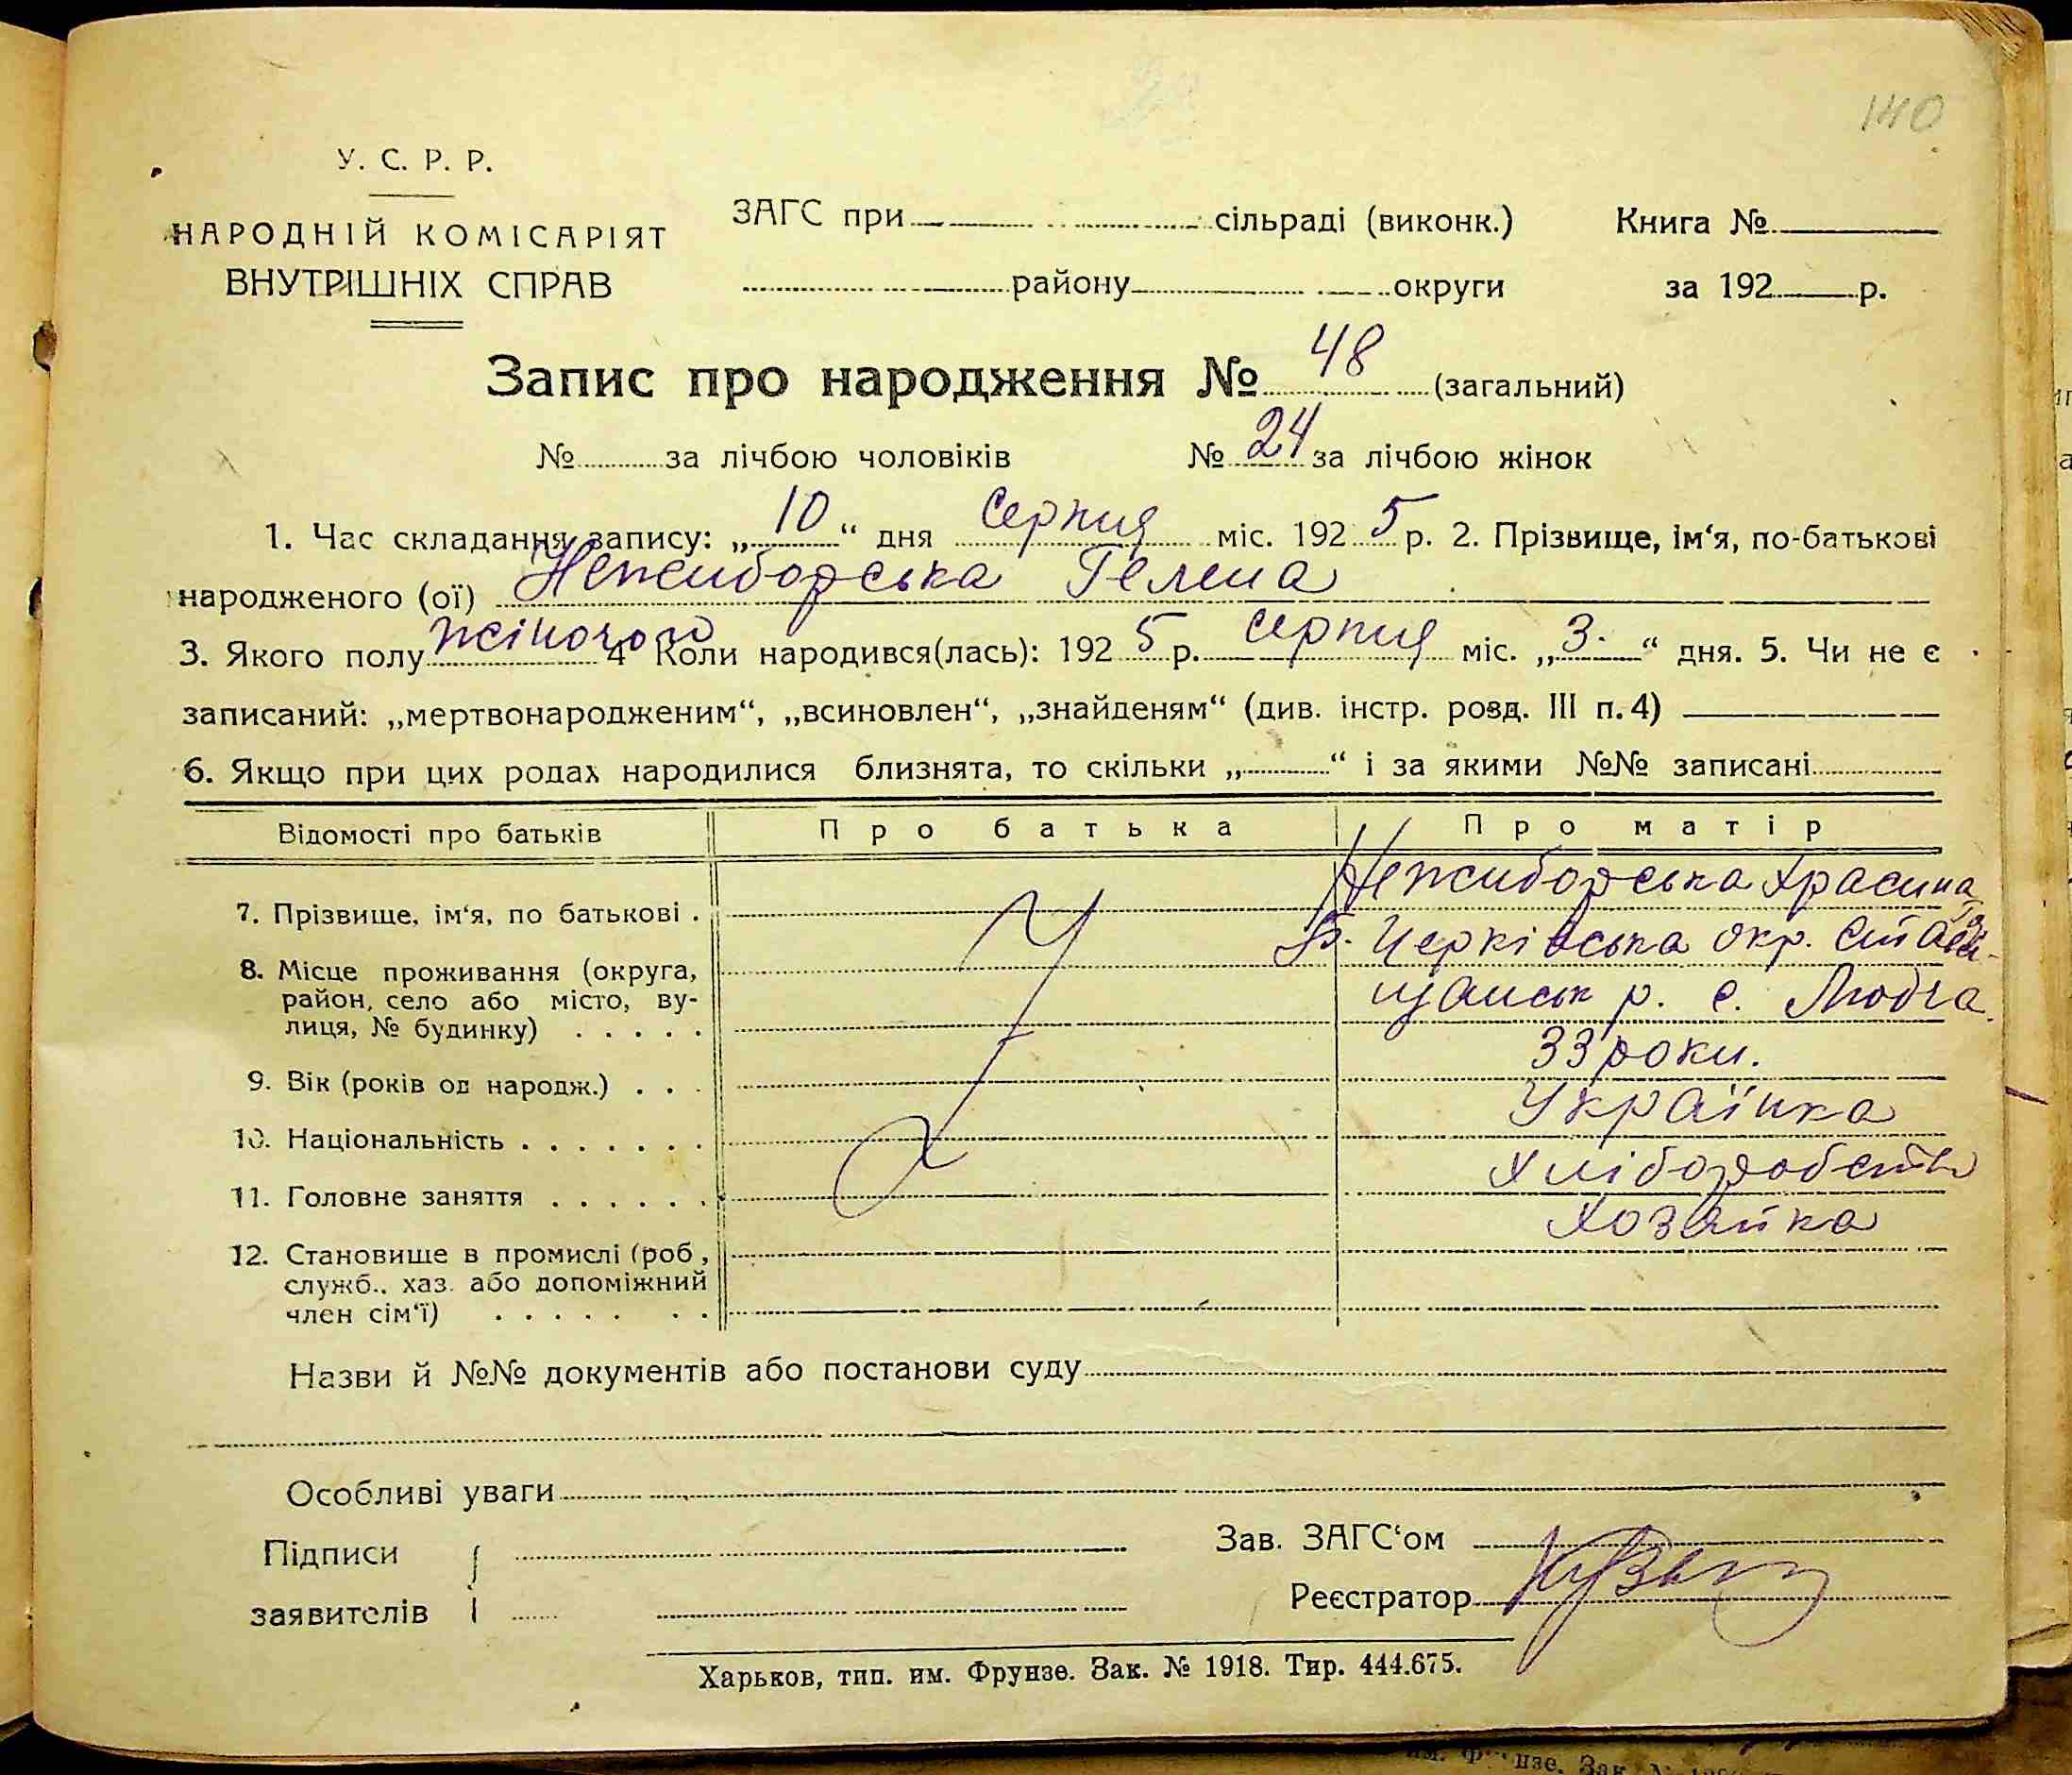 140
У. С. Р. Р.
НАРОДНІЙ КОМІСАРІЯТ
ВНУТРІШНІХ СПРАВ
ЗАГС при сільраді (виконк.) Книга №
району округи за 192 р.
Запис про народження № 48 (загальний)
№ за лічбою чоловіків № 24 за лічбою жінок
1. Час складання запису: „10“ дня Серпня міс. 1925 р. 2. Прізвище, ім‘я, по-батькові
народженого (ої) Нежиборська Гелена
3. Якого полу жіночого 4 Коли народився(лась): 1925 р. Серпня міс. „3“ дня. 5. Чи не є
записаний: „мертвонародженим“, „всиновлен“, „знайденям“ (див. інстр. розд. III п. 4)
6. Якщо при цих родах народилися близнята, то скільки „ “ і за якими №№ записані
Відомості про батьків Про батька Про матір
7. Прізвище, ім‘я, по батькові . Нежиборська
8. Місце проживання (округа, район, село або місто, вулиця, № будинку) . . . . . окр.
р. с.
9. Вік (років од народж.) . . . 33 роки.
10. Національність . . . . . . . Українка
11. Головне заняття . . . . . . Хліборобств
12. Становище в промислі (роб, служб.. хаз. або допоміжний член сім‘ї) . . . . . . . Хозяйка
Назви й №№ документів або постанови суду
Особливі уваги
Підписи
заявителів
Зав. ЗАГС‘ом
Реєстратор
Харьков, тип. им. Фрунзе. Зак. № 1918. Тир. 444.675.